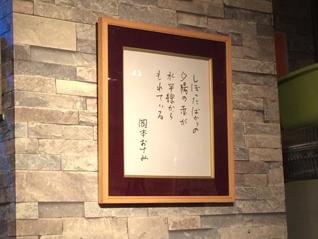 しぼったばかりの
夕陽の赤が
水平線から
もれている
岡本おさみ